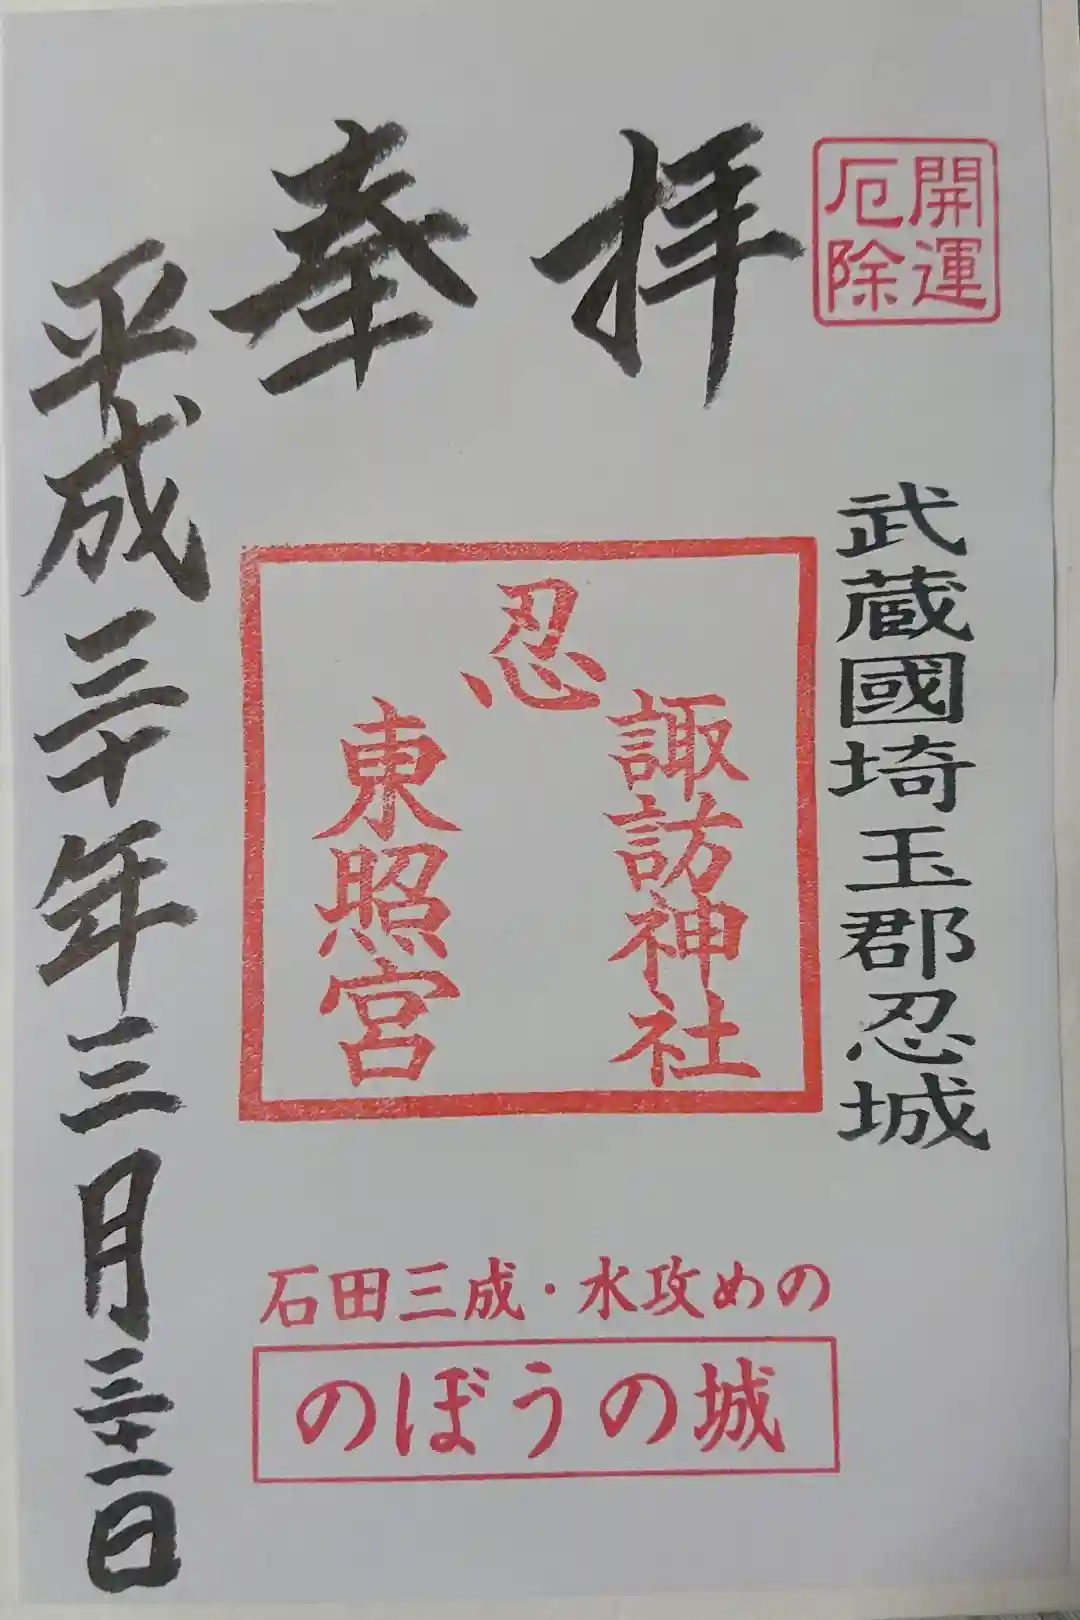 開運
厄除
奉拝
武蔵國埼玉郡忍城
忍
諏訪神社
東照宮
平成三十年三月三十一日
石田三成・水攻めの
のぼうの城